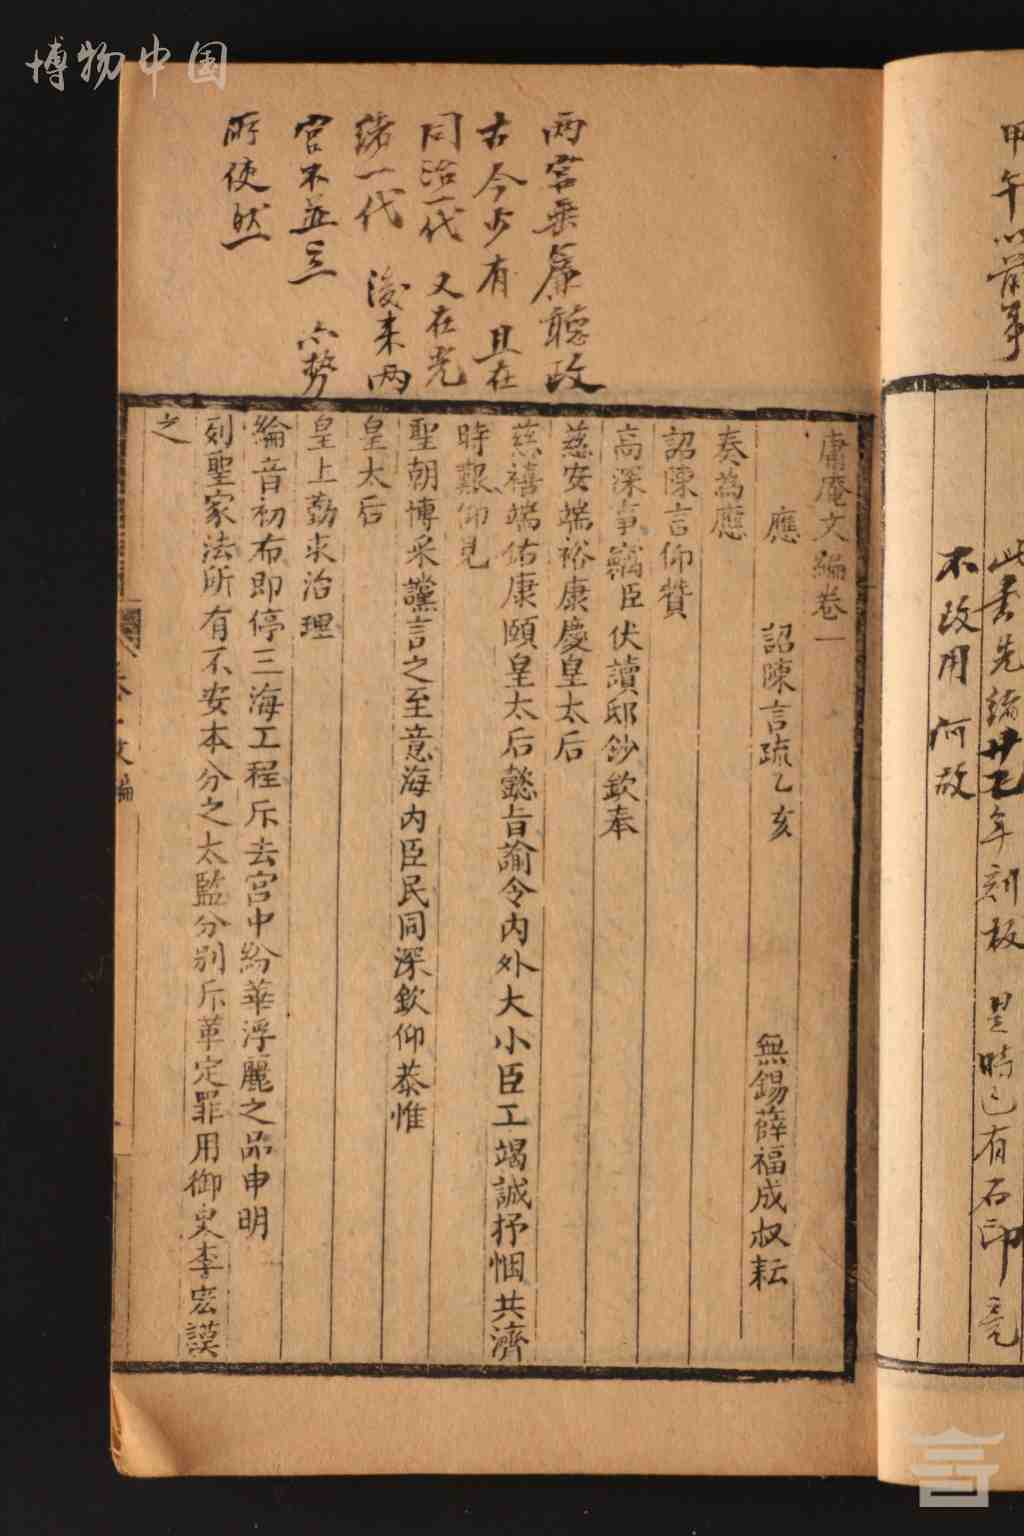 博物中国
甲午以前事
此書光緒廿七年刻板 是時已有石印 竟
不改用 何故
两宫垂簾聽政
古今少有 且在
同治一代 又在光
緒一代 後来两
宫不並立 亦勢
所使然
庸庵文編卷一
應 詔陳言疏乙亥 無錫薛福成叔耘
奏為應
詔陳言仰贊
高深事竊臣伏讀邸鈔欽奉
慈安端裕康慶皇太后
慈禧端佑康頤皇太后懿旨諭令内外大小臣工竭誠抒悃共濟
時艱仰見
聖朝博采讜言之至意海内臣民同深欽仰恭惟
皇太后
皇上勤求治理
綸音初布即停三海工程斥去宫中紛華浮麗之品申明
列聖家法所有不安本分之太監分别斥革定罪用御史李宏謨
之